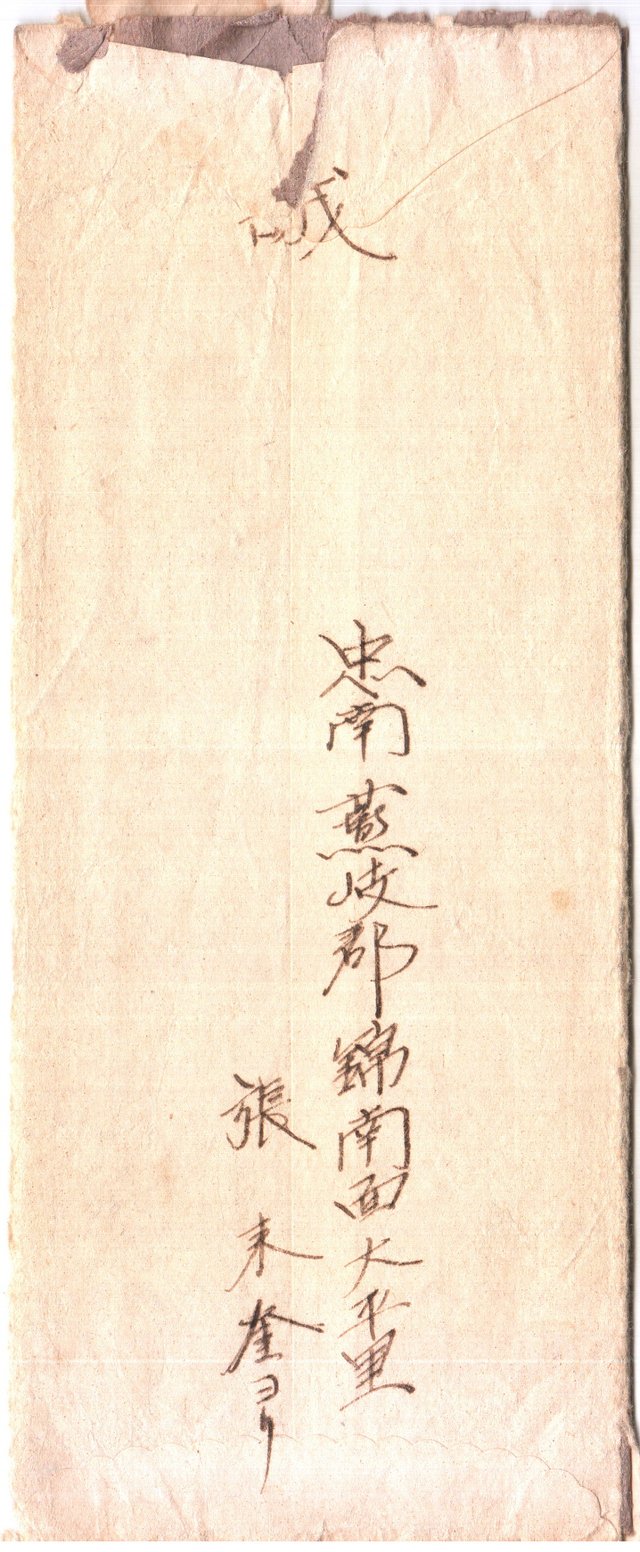 忠南燕岐郡錦南面大平里
張来奎ヨリ